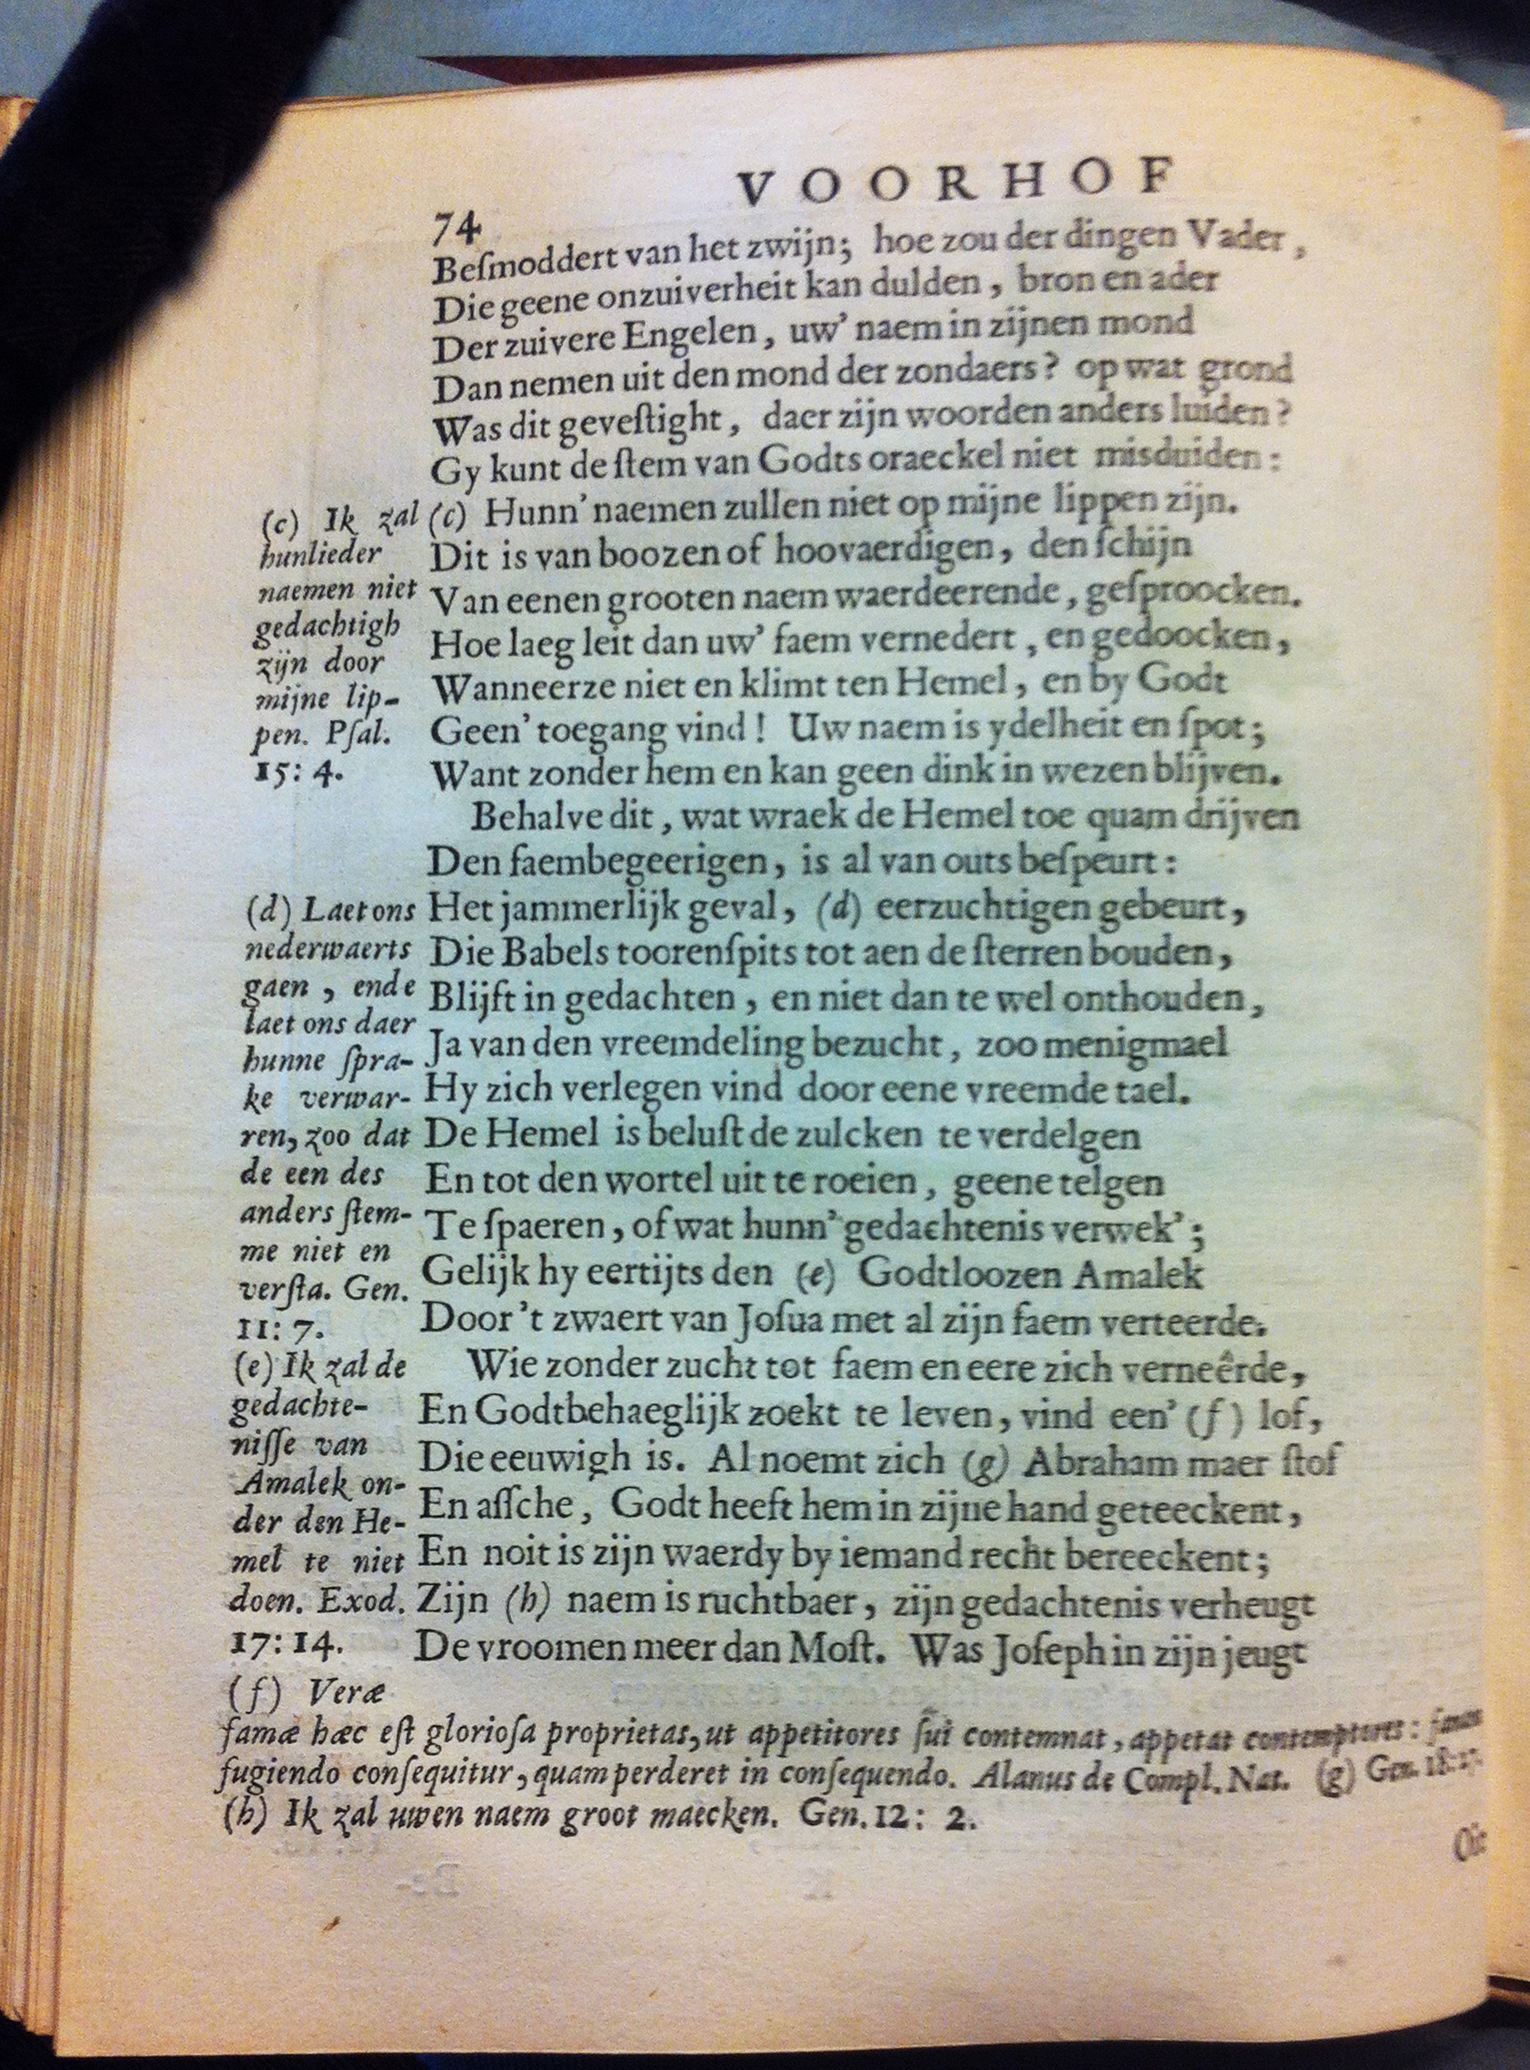 74
VOORHOF
Beſmoddert van het zwijn; hoe zou der dingen Vader,
Die geene onzuiverheit kan dulden, bron en ader
Der zuivere Engelen, uw' naem in zijnen mond
Dan nemen uit den mond der zondaers? op wat grond
Was dit geveſtight, daer zijn woorden anders luiden?
Gy kunt de ſtem van Godts oraeckel niet misduiden:
(c) Hunn' naemen zullen niet op mijne lippen zijn.
Dit is van boozen of hoovaerdigen, den ſchijn
Van eenen grooten naem waerdeerende, geſproocken.
Hoe laeg leit dan uw' faem vernedert, en gedoocken,
Wanneerze niet en klimt ten Hemel, en by Godt
Geen' toegang vind! Uw naem is ydelheit en ſpot;
Want zonder hem en kan geen dink in wezen blijven.
Behalve dit, wat wraek de Hemel toe quam drijven
Den faembegeerigen, is al van outs beſpeurt:
Het jammerlijk geval, (d) eerzuchtigen gebeurt,
Die Babels toorenſpits tot aen de ſterren bouden,
Blijft in gedachten, en niet dan te wel onthouden,
Ja van den vreemdeling bezucht, zoo menigmael
Hy zich verlegen vind door eene vreemde tael.
De Hemel is beluſt de zulcken te verdelgen
En tot den wortel uit te roeien, geene telgen
Te ſpaeren, of wat hunn' gedachtenis verwek';
Gelijk hy eertijts den (e) Godtloozen Amalek
Door 't zwaert van Joſua met al zijn faem verteerde.
Wie zonder zucht tot faem en eere zich verneêrde,
En Godtbehaeglijk zoekt te leven, vind een' (f) lof,
Die eeuwigh is. Al noemt zich (g) Abraham maer ſtof
En aſſche, Godt heeft hem in zijne hand geteeckent,
En noit is zijn waerdy by iemand recht bereeckent;
Zijn (h) naem is ruchtbaer, zijn gedachtenis verheugt
De vroomen meer dan Moſt. Was Joſeph in zijn jeugt
(c) Ik zal
hunlieder
naemen niet
gedachtigh
zijn door
mijne lip-
pen. Pſal.
15: 4.
(d) Laet ons
nederwaerts
gaen, ende
laet ons daer
hunne ſpra-
ke verwar-
ren, zoo dat
de een des
anders ſtem-
me niet en
verſta. Gen.
11: 7.
(e) Ik zal de
gedachte-
niſſe van
Amalek on-
der den He-
mel te niet
doen. Exod.
17: 14.
(f) Veræ
famæ hæc eſt glorioſa proprietas, ut appetitores ſui contemnat, appetat contemptores: famam
fugiendo conſequitur, quam perderet in conſequendo. Alanus de Compl. Nat. (g) Gen. 18:27.
(h) Ik zal uwen naem groot maecken. Gen. 12: 2.